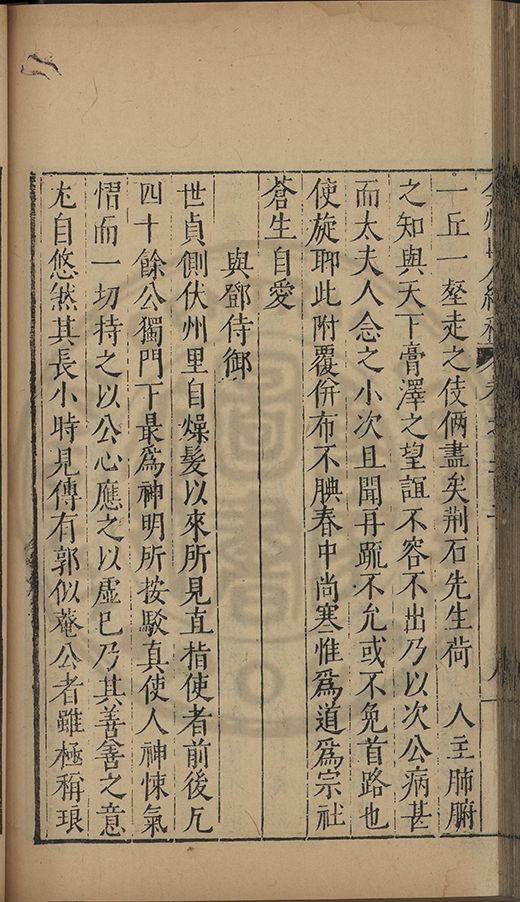 一丘一壑走之伎倆盡矣荆石先生荷　人主肺腑
之知與天下膏澤之望誼不容不出乃以次公病甚
而太夫人念之小次且聞再疏不允或不免首路也
使旋聊此附覆併布不腆春中尚寒惟爲道爲宗社
蒼生自愛
與鄧侍御
世貞側伏州里自燥髮以來所見直指使者前後凡
四十餘公獨門下最爲神明所按駁真使人神悚氣
慴而一切持之以公心應之以虛已乃其善善之意
尤自悠然其長小時見傳有郭似菴公者雖極稱琅